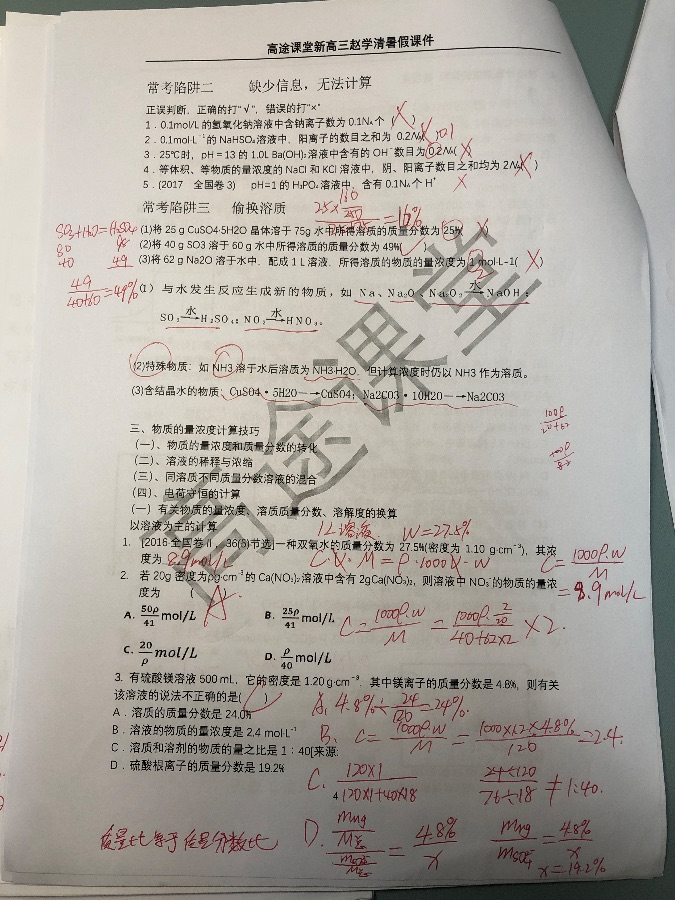 高途课堂新高三赵学清暑假课件
常考陷阱二 缺少信息，无法计算
正误判断，正确的打"√"，错误的打"×"
1．0.1mol/L的氢氧化钠溶液中含钠离子数为0.1Nₐ个（ × ）
2．0.1mol·L⁻¹的NaHSO₄溶液中，阳离子的数目之和为 0.2Nₐ( × ) 01
3．25℃时，pH＝13的1.0L Ba(OH)₂溶液中含有的OH⁻数目为0.2Nₐ( × )
4．等体积、等物质的量浓度的NaCl和KCl溶液中，阴、阳离子数目之和均为2Nₐ( × )
5．(2017 全国卷3) pH=1的H₃PO₄溶液中，含有0.1Nₐ个H⁺ ×
常考陷阱三 偷换溶质
25×160/250 =16%
SO₃+H₂O=H₂SO₄
80 98
40 49
49/40+60=49%
(1)将25 g CuSO4·5H2O 晶体溶于75g 水中所得溶质的质量分数为25%( × )
(2)将40 g SO3溶于60 g水中所得溶质的质量分数为49%( √
(3)将62 g Na2O溶于水中，配成1 L溶液，所得溶质的物质的量浓度为1 mol·L-1( × )
2
(1）与水发生反应生成新的物质，如 Na、Na₂O、Na₂O₂ 水→NaOH；
SO₃ 水→H₂SO₄；NO₂ 水→HNO₃。
(2)特殊物质：如NH3溶于水后溶质为NH3·H2O，但计算浓度时仍以NH3作为溶质。
(3)含结晶水的物质：CuSO4·5H2O—→CuSO4；Na2CO3·10H2O—→Na2CO3
三、物质的量浓度计算技巧
(一)、物质的量浓度和质量分数的转化
(二)、溶液的稀释与浓缩
(三)、同溶质不同质量分数溶液的混合
(四)、电荷守恒的计算
(一）有关物质的量浓度、溶质质量分数、溶解度的换算
以溶液为主的计算
1L溶液 W=27.5%
1. [2016全国卷Ⅱ，36(6)节选]一种双氧水的质量分数为27.5%(密度为1.10 g·cm⁻³)，其浓
度为 8.9mol/L
C·V·M=ρ·1000·w
C=1000ρ·w/M
=8.9mol/L
2. 若20g密度为ρg·cm⁻³的Ca(NO₃)₂溶液中含有2gCa(NO₃)₂，则溶液中NO₃⁻的物质的量浓
度为 ( A
A. 50ρ/41 mol/L B. 25ρ/41 mol/L
C=1000ρ·w/M=1000ρ·2/20/40+62×2×2.
C. 20/ρ mol/L D. ρ/40 mol/L
3. 有硫酸镁溶液500 mL，它的密度是1.20 g·cm⁻³，其中镁离子的质量分数是4.8%，则有关
该溶液的说法不正确的是( )
A．溶质的质量分数是24.0%
B．溶液的物质的量浓度是2.4 mol·L⁻¹
C．溶质和溶剂的物质的量之比是1∶40[来源:
D．硫酸根离子的质量分数是19.2%
A, 4.8%÷24/120=24%.
B. C=1000ρ·w/M=1000×1.2×4.8%/120=2.4.
C. 120×1/120×1+40×18
24÷120/76÷18≠1:40.
4
质量比等于质量分数比
D. =4.8%/x
=4.8%/x
x=19.2%
高途课堂